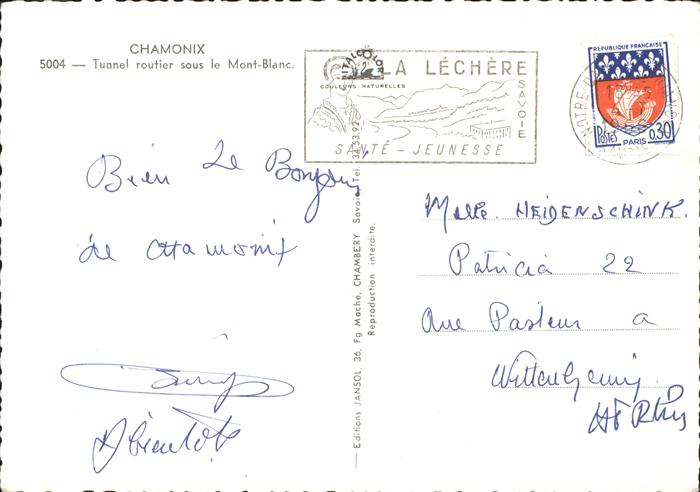 CHAMONIX
5004 — Tunnel routier sous le Mont-Blanc.
ITALCOLOR
COULEURS NATURELLES
LA LÉCHÈRE
SAVOIE
SANTÉ - JEUNESSE
REPUBLIQUE FRANCAISE
Postes 0.30
PARIS
Bien Le Bonjour
de chamonix
A Bientôt
— Editions JANSOL, 36, Fg Mache, CHAMBERY Savoie. Tel. 34.33.92
Reproduction interdite.
Melle. HEIDENSCHINK.
Patricia 22
Rue Pasteur a
Wittenheim
Ht Rhin